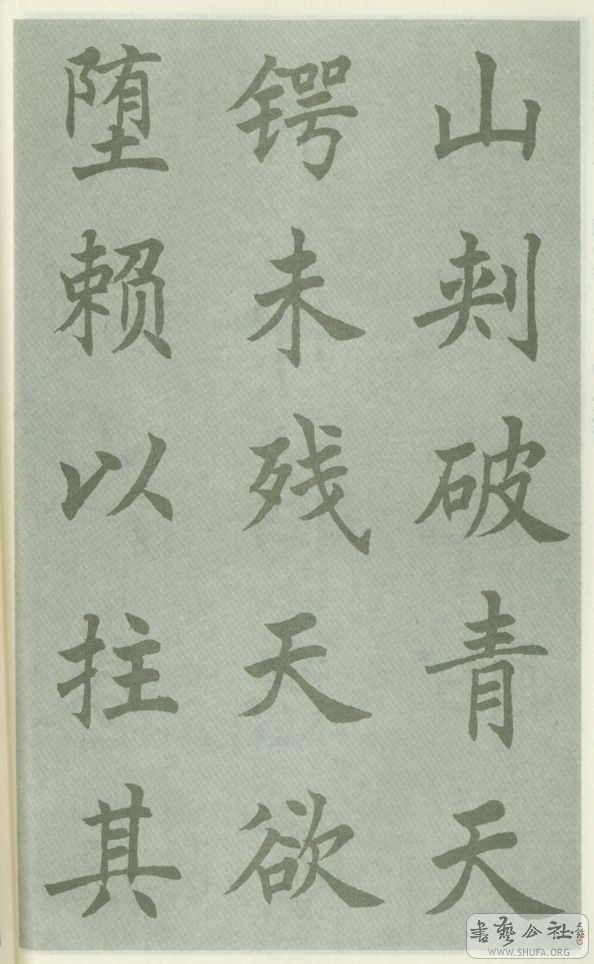 山刺破青天
锷未残天欲
堕赖以拄其
書藝公社
WWW.SHUFA.ORG